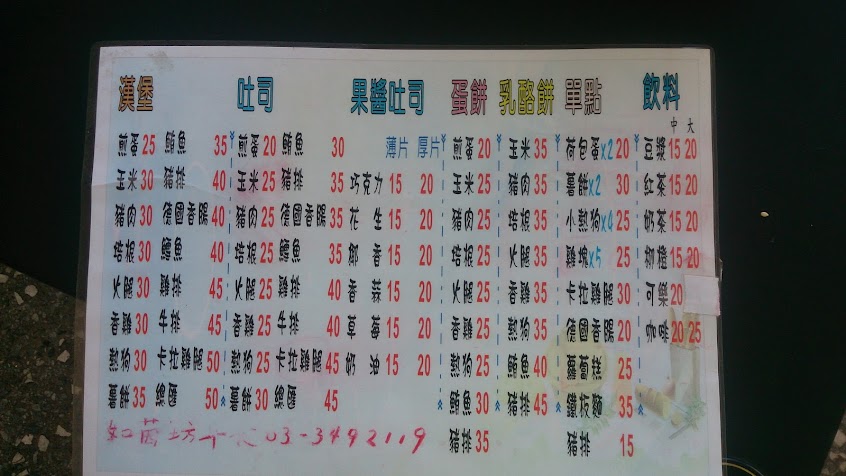 漢堡 吐司 果醬吐司 蛋餅 乳酪餅 單點 飲料
中 大
煎蛋 25 鮪魚 35 煎蛋 20 鮪魚 30 薄片 厚片 煎蛋 20 玉米 35 荷包蛋x2 20 豆漿 15 20
玉米 30 豬排 40 玉米 25 豬排 35 巧克力 15 20 玉米 25 豬肉 35 薯餅x2 30 紅茶 15 20
豬肉 30 德國香腸 40 豬肉 25 德國香腸 35 花生 15 20 豬肉 25 培根 35 小熱狗x4 25 奶茶 15 20
培根 30 鱈魚 40 培根 25 鱈魚 35 椰香 15 20 培根 25 火腿 35 雞塊x5 25 柳橙 15 20
火腿 30 雞排 45 火腿 25 雞排 40 香蒜 15 20 火腿 25 香雞 35 卡拉雞腿 30 可樂 20
香雞 30 牛排 45 香雞 25 牛排 40 草莓 15 20 香雞 25 熱狗 35 德國香腸 20 咖啡 20 25
熱狗 30 卡拉雞腿 50 熱狗 25 卡拉雞腿 45 奶油 15 20 熱狗 25 鮪魚 40 蘿蔔糕 25
薯餅 35 總匯 50 薯餅 30 總匯 45 鮪魚 30 豬排 45 鐵板麵 35
豬排 35 豬排 15
03-3492119